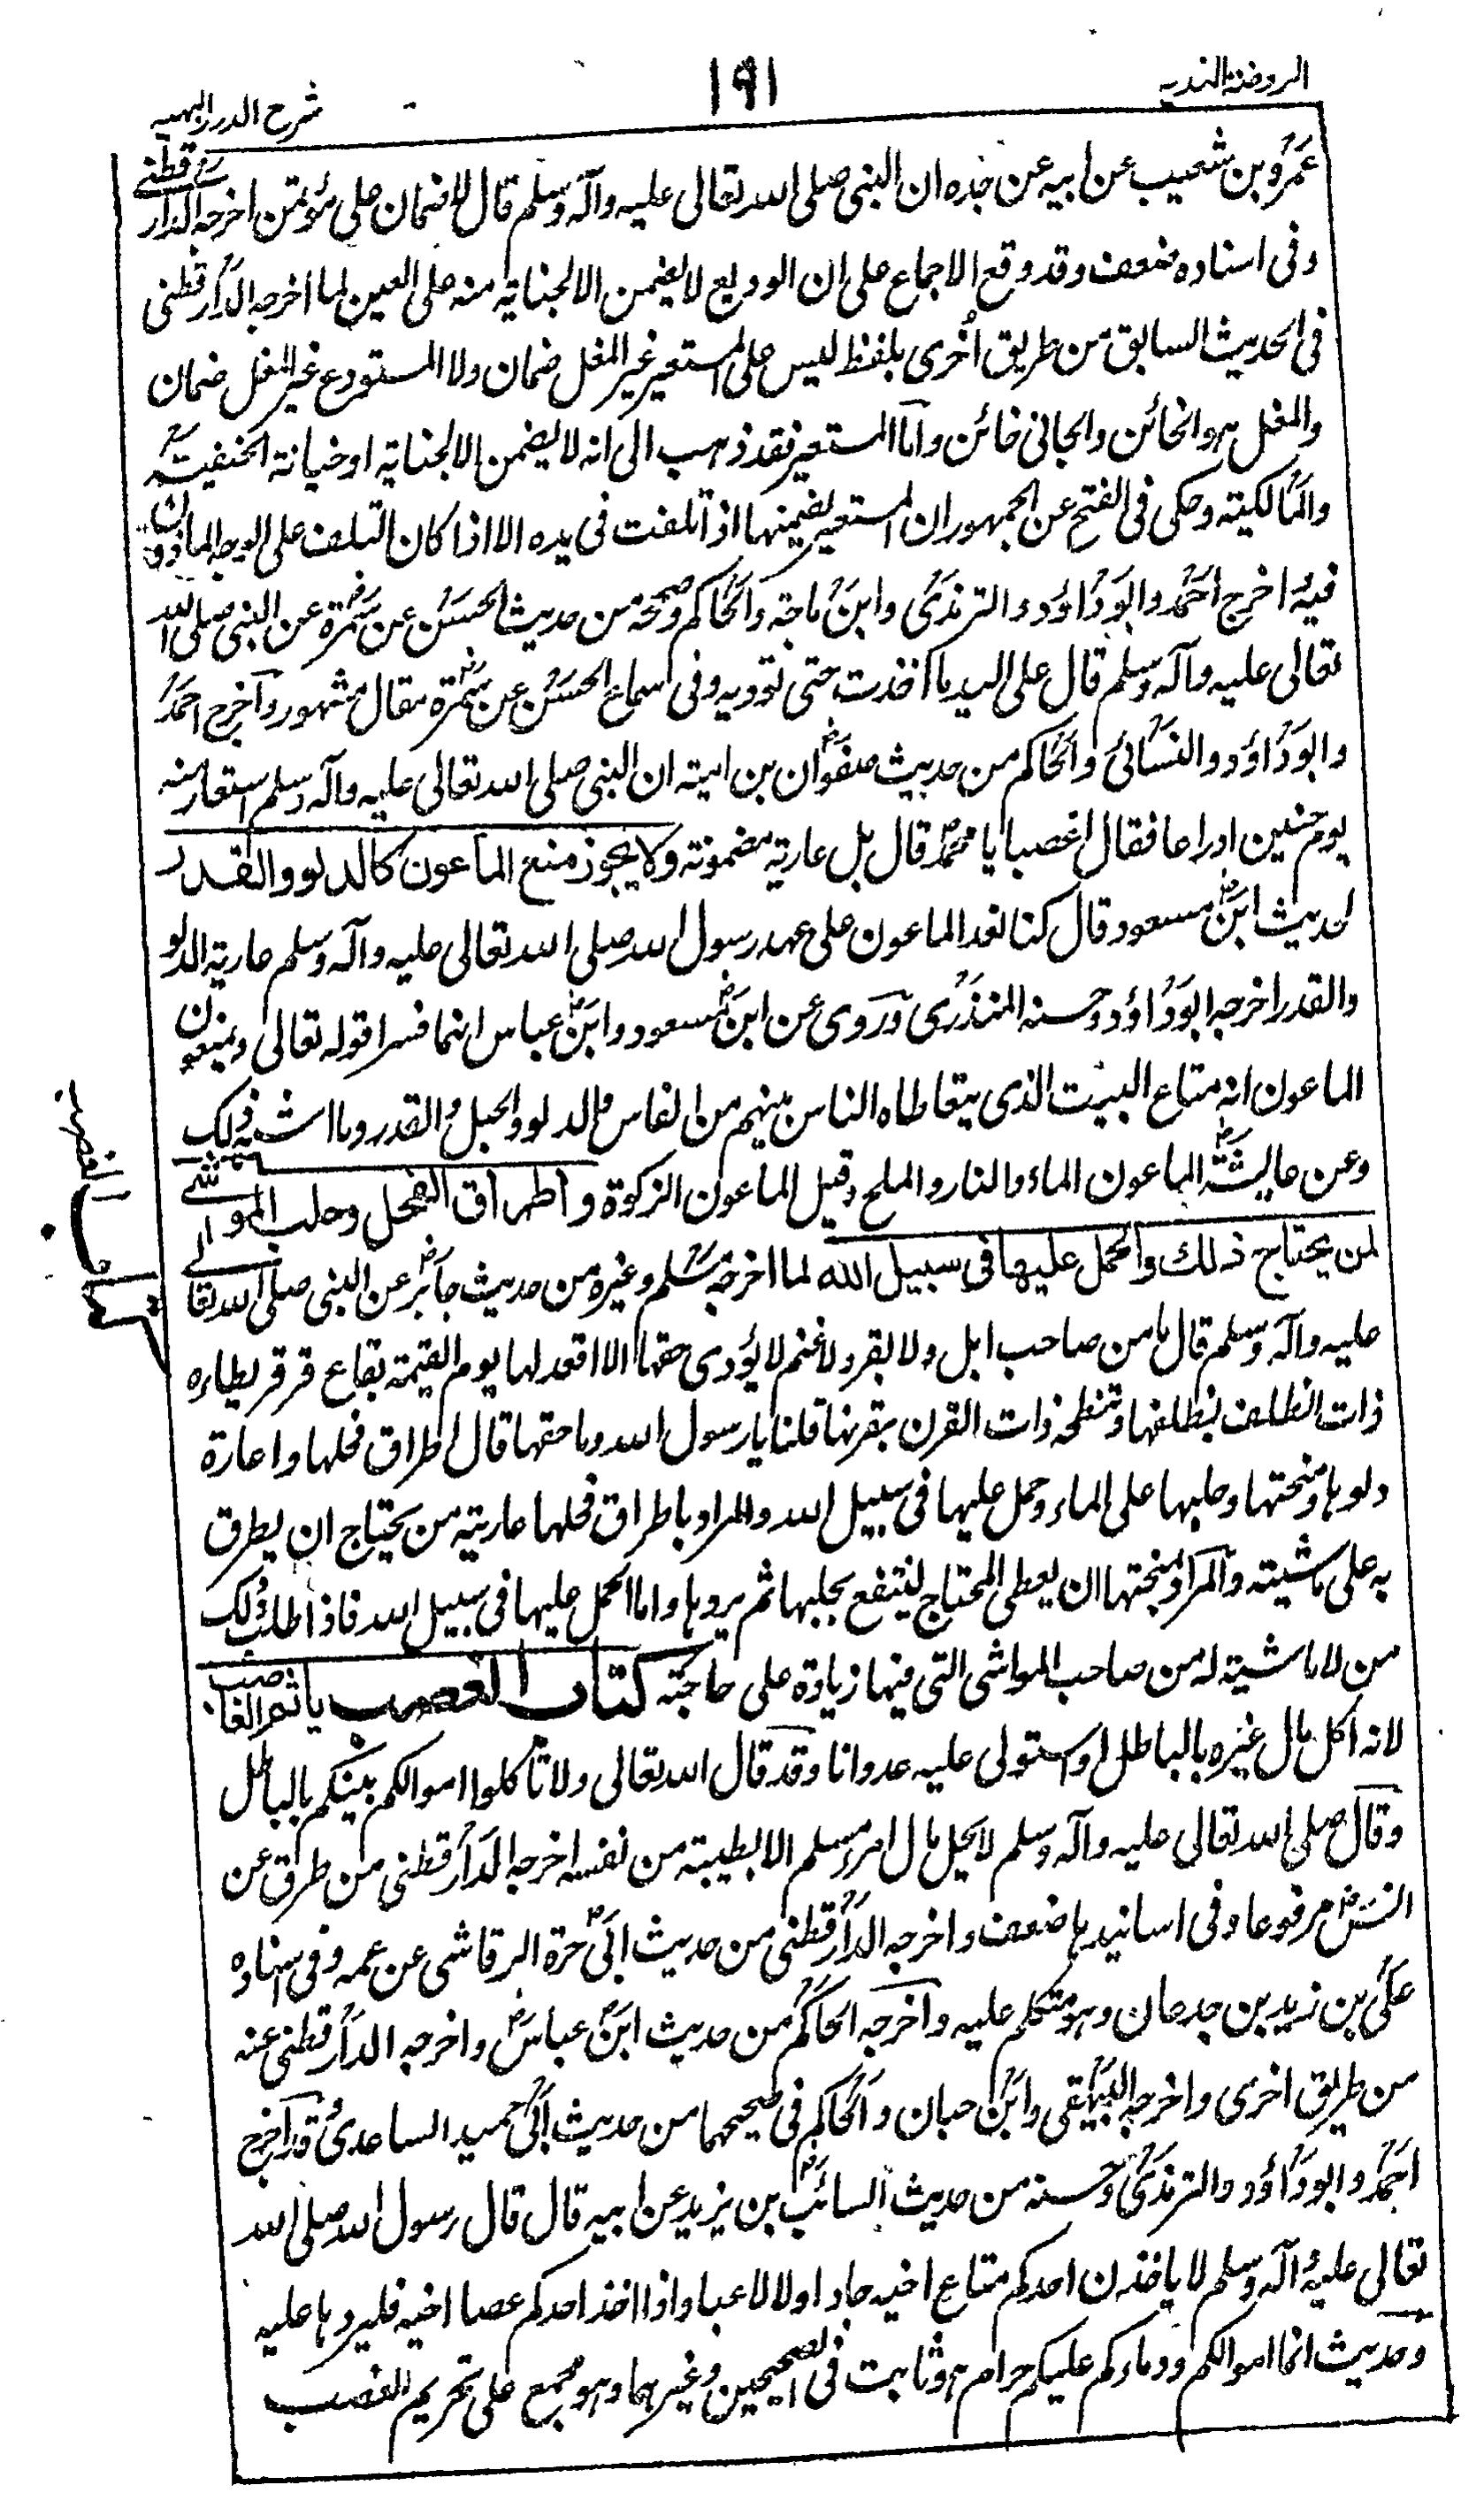 الروضة الندیه
١٩١
شرح الدرر البهیه
عمرو بن شعیب عن ابیه عن جده ان النبی صلی الله تعالی علیه وآله وسلم قال لا ضمان علی مؤتمن اخرجه الدارقطنی
وفی اسناده ضعف وقد وقع الاجماع علی ان الودیع لا یضمن الا لجنایة منه علی العین لما اخرجه الدارقطنی
فی الحدیث السابق من طریق اُخری بلفظ لیس علی المستعیر غیر المغل ضمان ولا المستودع غیر المغل ضمان
والمغل هو الخائن والجانی خائن واما المستعیر فقد ذهب الی انه لا یضمن الا لجنایة او خیانة الحنفیة
والمالکیة وحکی فی الفتح عن الجمهور ان المستعیر یضمنها اذا تلفت فی یده الا اذا کان التلف علی الوجه الماذون
فیه اخرج احمد وابو داؤد والترمذی وابن ماجة والحاکم وصححه من حدیث الحسن عن سمرة عن النبی صلی الله
تعالی علیه وآله وسلم قال علی الید ما اخذت حتی تودیه وفی سماع الحسن عن سمرة مقال مشهور واخرج احمد
وابو داؤد والنسائی والحاکم من حدیث صفوان بن امیة ان النبی صلی الله تعالی علیه وآله وسلم استعار منه
یوم حنین ادراعا فقال اغصبا یا محمد قال بل عاریة مضمونة ولا یجوز منع الماعون کالدلو والقدر
لحدیث ابن مسعود قال کنا نعد الماعون علی عهد رسول الله صلی الله تعالی علیه وآله وسلم عاریة الدلو
والقدر اخرجه ابو داؤد وحسنه المنذری وروی عن ابن مسعود وابن عباس انهما فسرا قوله تعالی ویمنعون
الماعون انه متاع البیت الذی یتعاطاه الناس بینهم من الفاس والدلو والحبل والقدر وما اشبه ذلک
وعن عائشة الماعون الماء والنار والملح وقیل الماعون الزکوة واطراق الفحل وحلب المواشی
لمن یحتاج ذلك والحمل علیها فی سبیل الله لما اخرجه مسلم وغیره من حدیث جابر عن النبی صلی الله تعالی
علیه وآله وسلم قال ما من صاحب ابل ولا بقر ولا غنم لا یؤدی حقها الا اقعد لها یوم القیمة بقاع قرقر یطاءه
ذات الظلف بظلفها وتنطحه ذات القرن بقرنها قلنا یا رسول الله وما حقها قال اطراق فحلها واعارة
دلوها ومنحتها وحلبها علی الماء وحمل علیها فی سبیل الله والمراد باطراق فحلها عاریة من یحتاج ان یطرق
به علی ماشیته والمراد بمنحتها ان یعطی المحتاج لینتفع بحلبها ثم یردها واما الحمل علیها فی سبیل الله فاذا طلب ذلک
من لا ماشیة له من صاحب المواشی التی فیها زیادة علی حاجته کتاب الغصب یاثم الغاصب
لانه اکل مال غیره بالباطل او استولی علیه عدوانا وقد قال الله تعالی ولا تاکلوا اموالکم بینکم بالباطل
وقال صلی الله تعالی علیه وآله وسلم لا یحل مال امرء مسلم الا بطیبة من نفسه اخرجه الدارقطنی من طرق عن
انس مرفوعا وفی اسانیدها ضعف واخرجه الدارقطنی من حدیث ابی حرة الرقاشی عن عمه وفی اسناده
علی بن زید بن جدعان وهو متکلم علیه واخرجه الحاکم من حدیث ابن عباس واخرجه الدارقطنی عنه
من طریق اخری واخرجه البیهقی وابن حبان والحاکم فی صحیحهما من حدیث ابی حمید الساعدی وقد اخرج
احمد وابو داؤد والترمذی وحسنه من حدیث السائب بن یزید عن ابیه قال قال رسول الله صلی الله
تعالی علیه وآله وسلم لا یاخذن احدکم متاع اخیه جادا ولا لاعبا واذا اخذ احدکم عصا اخیه فلیردها علیه
وحدیث انما اموالکم ودماءکم علیکم حرام هو ثابت فی الصحیحین وغیرهما وهو مجمع علی تحریم الغصب